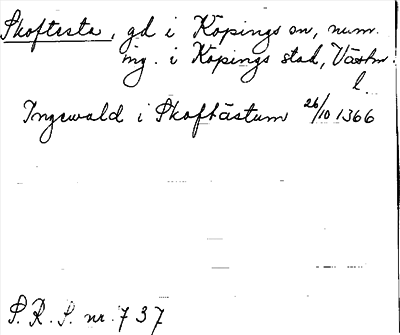 Skoftesta, gd i Köpings sn, num.
ing. i Köpings stad, Västm.
l.
Ingewald i Skoftästum 26/10 1366
P. R. S. nr. 737